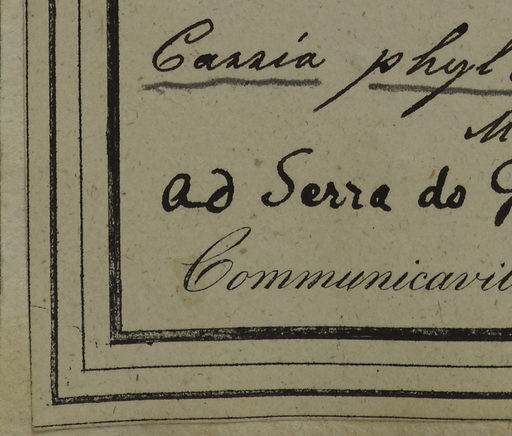 Cassia phyl
M
ad Serra do G
Communicavit